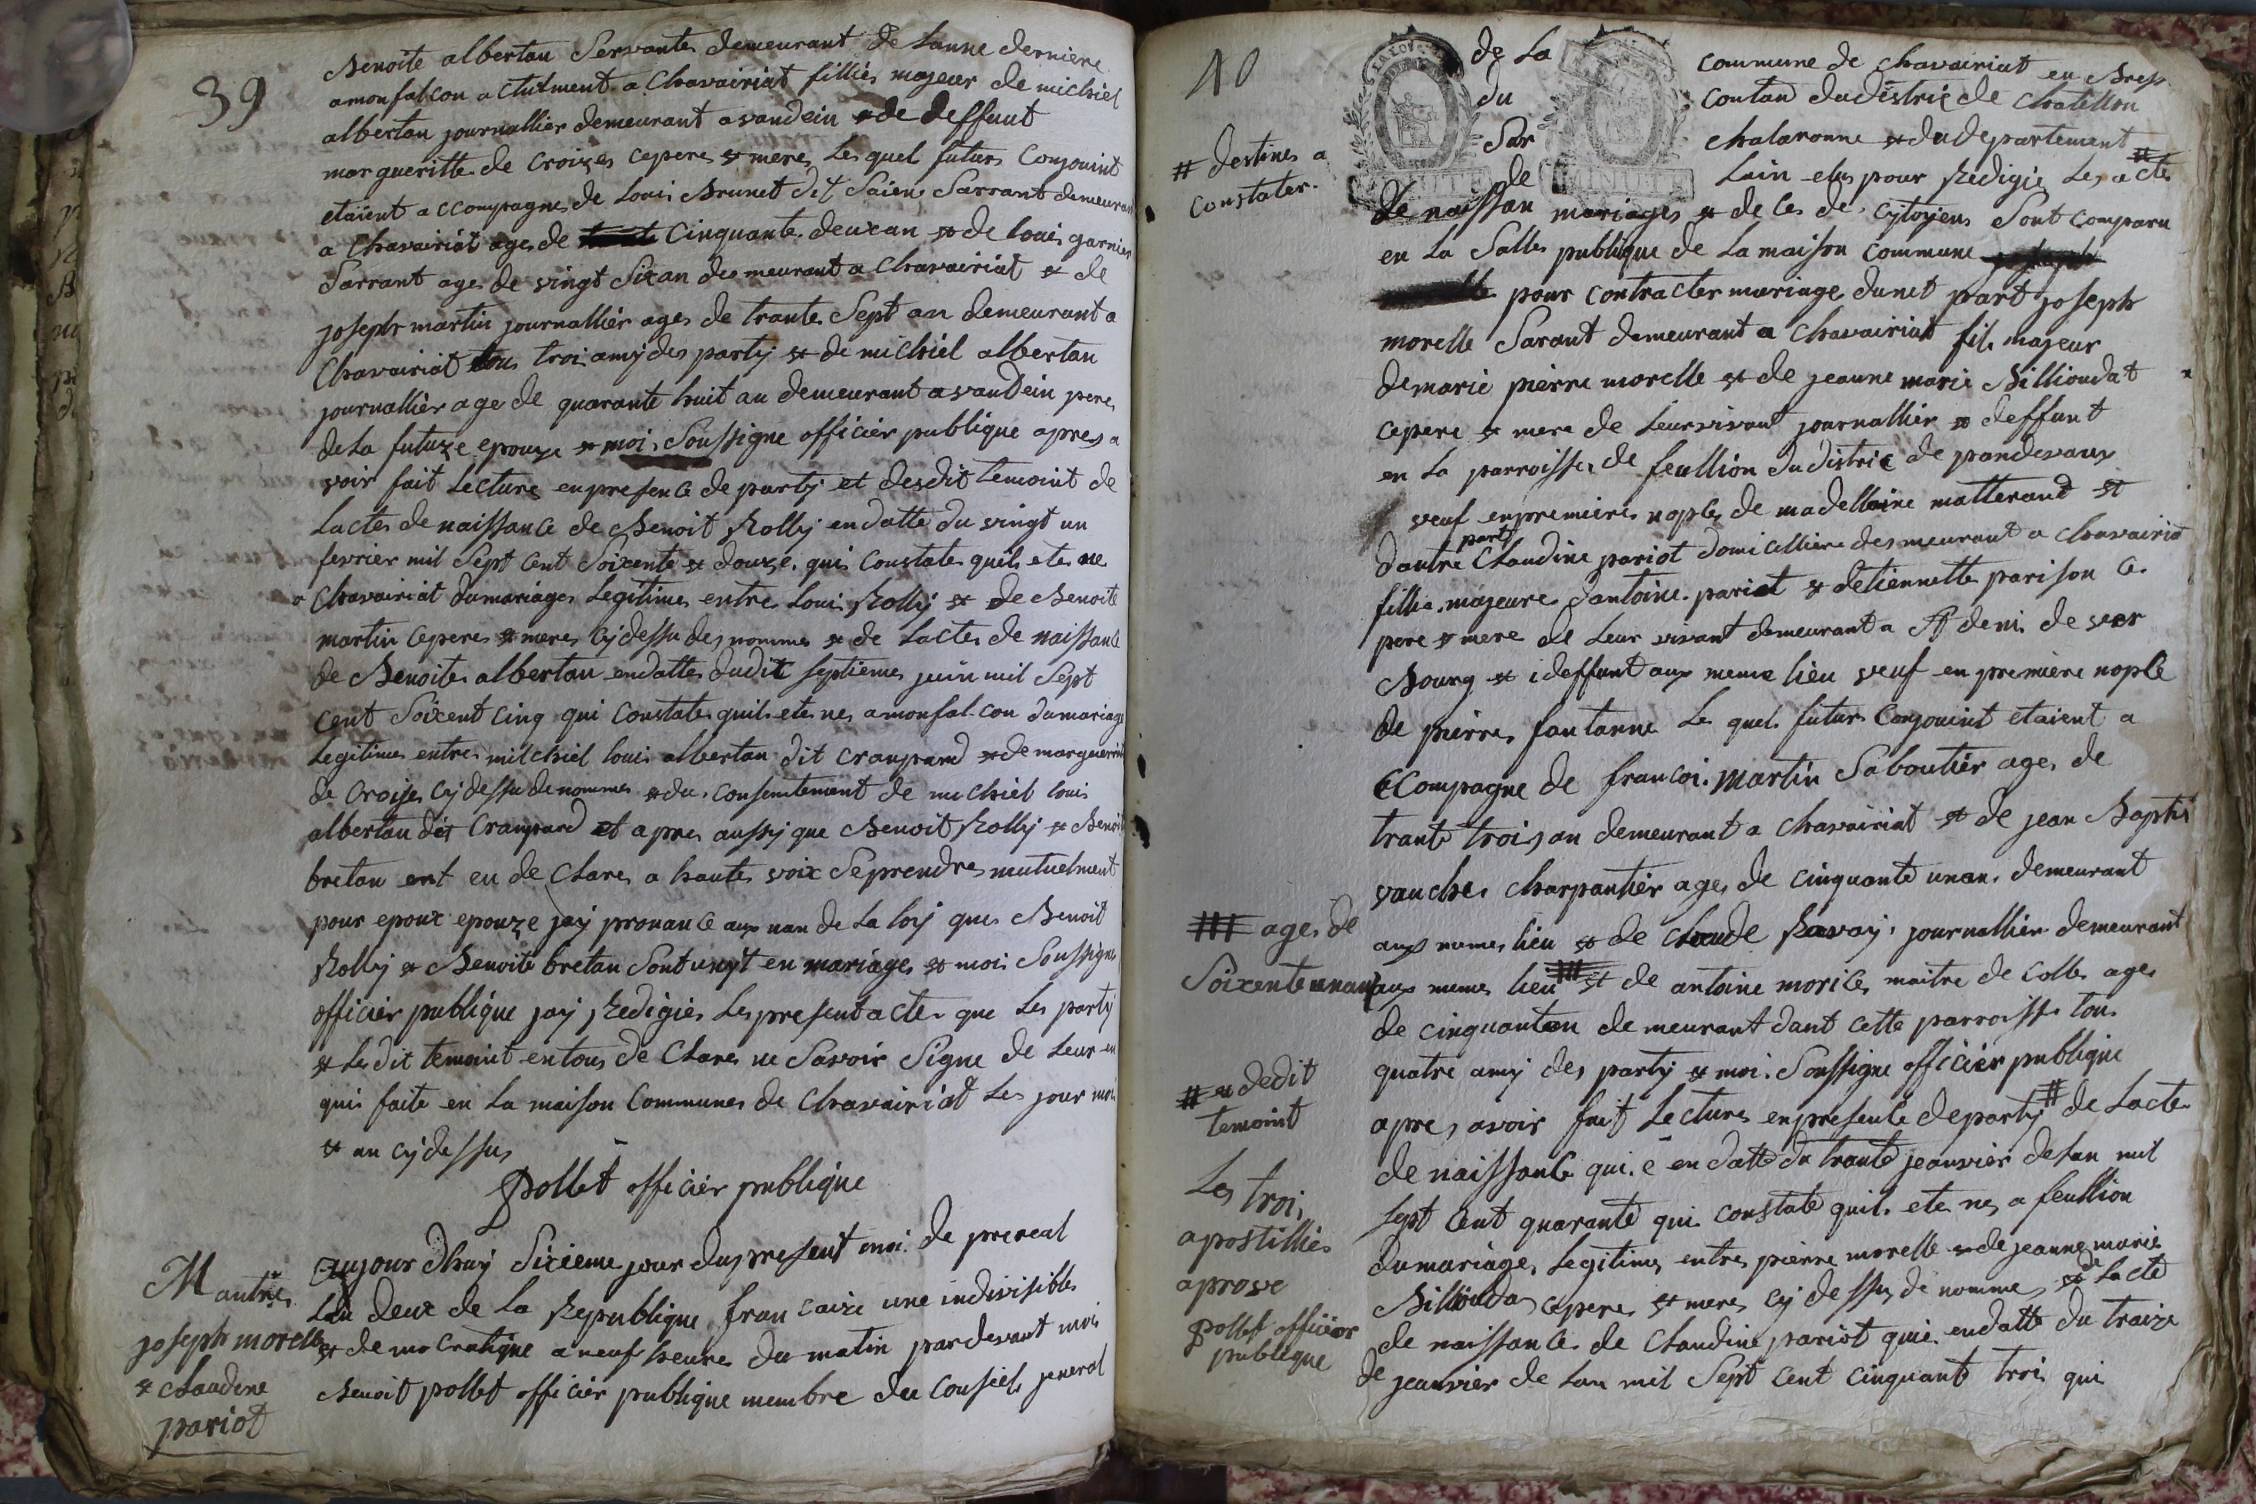 39
Benoite albertan Servante demeurant de Lanne derniere
a monfalcon actulment a Chavairiat fillies majeur de michiel
albertan journallier demeurant a vandein et de deffunt
margueritte de Croizes cepere et mere, Les quel futurs Conjouint
etaient accompagne de Loui Brunet dit Saiene Sarrant demeurant
a Chavairiat age de Cinquante deuxan et de loui garnier
Sarrant age de vingt Sixan demeurant a Chavairiat et de
joseph martin journallier ages de trante Sept an demeurant a
Chavairiat tous troi amy des party et de michiel albertan
journallier age de quarante huit an demeurant a vandein pere
de La future epouze et moi Soussigne officier publique apres a
voir fait Lecture en presence de party et desdit temoint de
Lactes de naissance de Benoit Rolly en datte du vingt un
fevrier mil Sept Cent Soixente et douze qui Constate quil ete ne
a Chavairiat du mariage Legitime entre Loui Rolly et de Benoite
martin cepere et mere cy dessu des nomme et de Lactes de naissance
de Benoite albertan en datte dudit septieme juin mil Sept
Cent Soixent Cinq qui Constate quil ete ne a monfalcon du mariage
Legitime entre milchiel loui albertan dit Cranpard et de margueritte
de Croise cy dessu denomme et du Consentement de michiel loui
albertan dit Cranpard et apres aussy que Benoit Rolly et Benoite
bretan ont eu de Clare a haute voix Se prendre mutuelment
pour epoux epouze jay pronance aux nan de La loy que Benoit
Rolly et Benoite bretan Sont unyt en mariage et moi Soussigne
officier publique jay Redigies Le present acte que Les party
et Le dit temoint en tous de Clare ne Savoir Signe de Leur en
qui faite en La maison Commune de Chavairiat Les jour moi
et an cy dessus
pollet officier publique
Mantre
joseph morelle
et Claudine
pariot
aujour dhuy Sixieme jour du present moi de prereal
Lan deux de La Republique francaize une indivisible
et de mocratique a neuf heure du matin pardevant moi
Benoit pollet officier publique membre du Consiel jeneral
10
de La commune de Chavairiat en Bres
du Contan dudistric de Chatillon
Sur Chalaronne et du departement
de Lain elu pour Redigie Les # acte
# destines a
Constater.
de naissan mariages et de ces de, cytoyens Sont comparu
en La Salle publique de La maison Commune
pour contracter mariage dunet part joseph
morelle Sarant demeurant a Chavairiat fil majeur
de marie pierre morelle et de jeanne marie Billioudat
cepere et mere de Leur vivant journallier et deffunt
en La parroisse de feullion du distric de pandevaux
veuf en premiere nople de madellaine matterand et
dautre part Claudine pariot domicelliere demeurant a Chavairiat
fillie majeure dantoine pariot et detiennette parison ce
pere et mere de Leur vivant demeurant a St deni de ver
Bourg et ideffunt aux meme lieu veuf en premiere nople
de pierre fontanne Le quel futur Conjouint etaient a
CCompagne de francoi martin Saboutier age de
trante trois an demeurant a Chavairiat et de jean Baptis
vauche Charpantier age de cinquante unan demeurant
aux meme lieu et de Claude Ravay journallier demeurant
aux meme lieu # et de antoine morice maitre de Colle age
# age de
Soixente unan
de cinquantan demeurant dant cette parroisse tous
quatre amy des party et moi Soussigne officier publique
apres avoir fait Lecture en presence de party # de Lacte
# et dedit
temoint
de naissance qui e en datte du trante jeanvier de Lan mil
sept Cent quarante qui constate quil ete ne a feullion
du mariage Legitime entre pierre morelle et de jeanne marie
Billiouda cepere et mere cy dessus de nomme et de Lacte
de naissance de Claudine pariot qui en datte du traize
de jeanvier de Lan mil Sept Cent Cinquant troi qui
Les troi
apostillies
aprove
pollet officier
publique